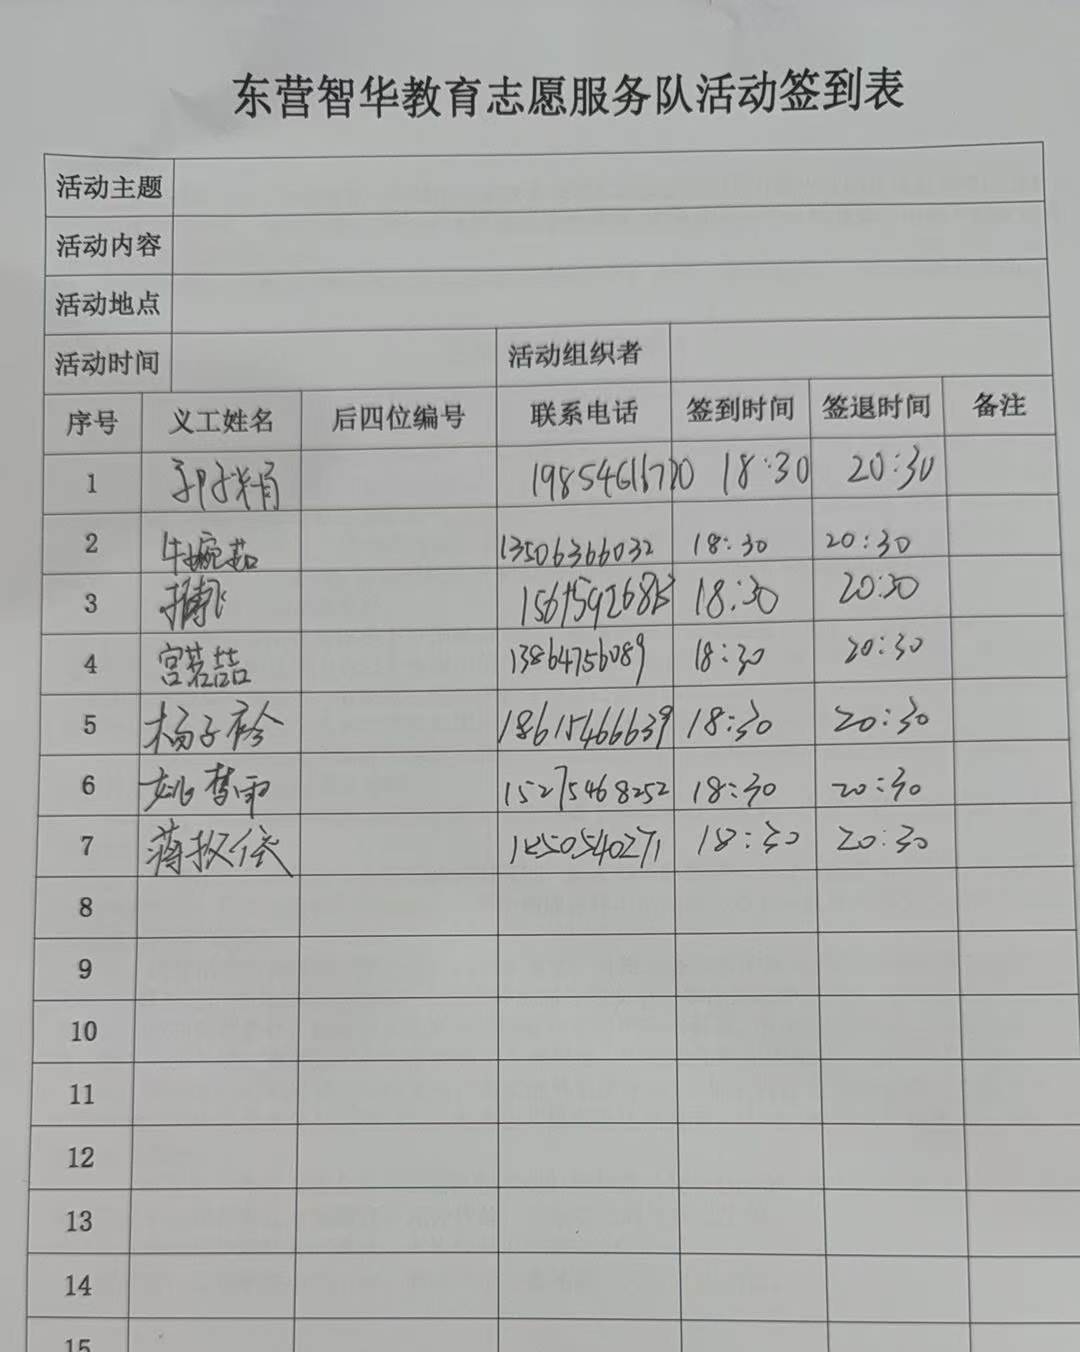 东营智华教育志愿服务队活动签到表
活动主题
活动内容
活动地点
活动时间 活动组织者
序号 义工姓名 后四位编号 联系电话 签到时间 签退时间 备注
1 18:30 20:30
2 牛婉茹 13506366032 18:30 20:30
3 18:30 20:30
4 宫茗喆 13864756089 18:30 20:30
5 杨子衿 18615466639 18:30 20:30
6 姚梦雨 15275468252 18:30 20:30
7 蒋 18:30 20:30
8
9
10
11
12
13
14
15